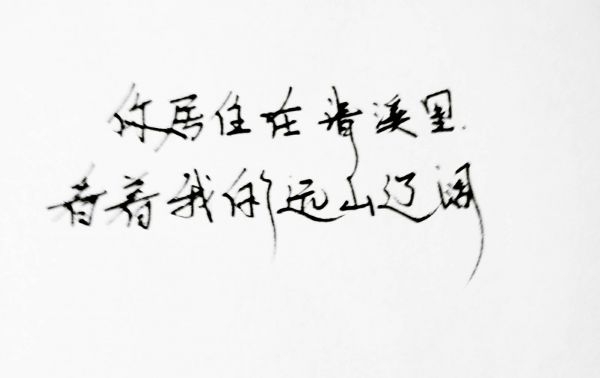 你居住在清溪里
看着我的远山辽阔